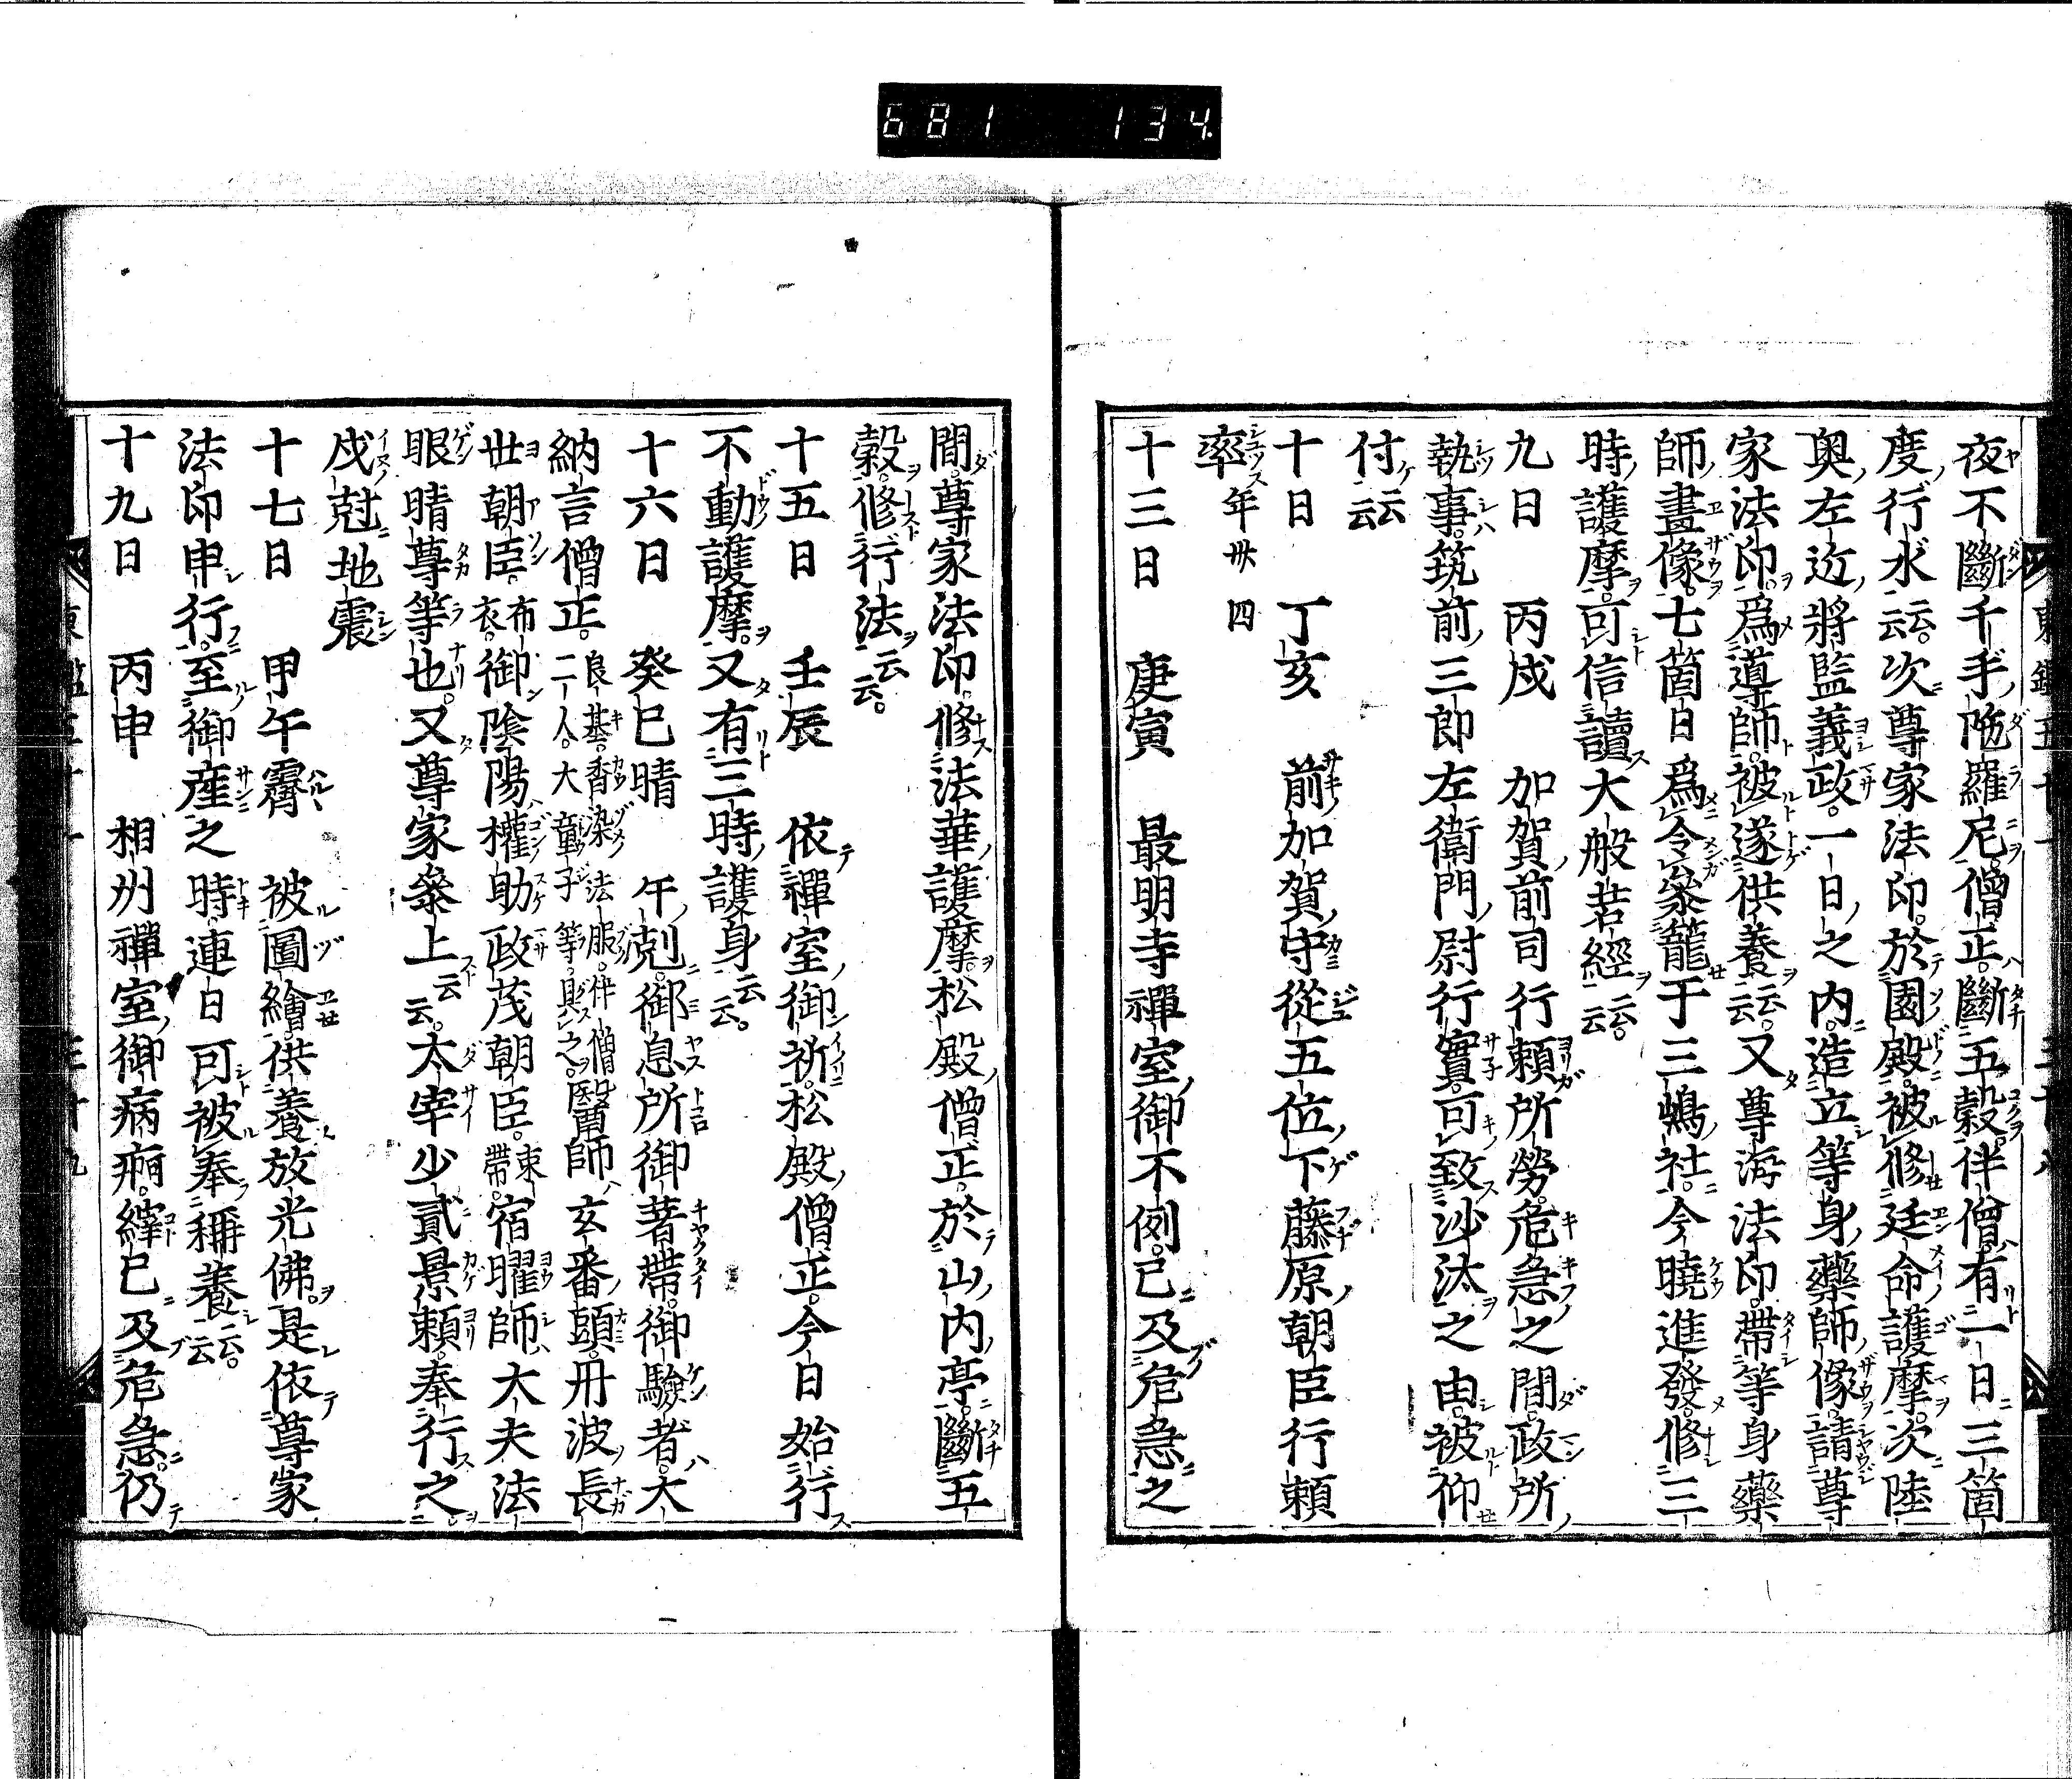 681 134
夜不斷千手陁羅尼僧正斷五穀伴僧有二日三箇
度行水云云次尊家法印於園殿被修廷命護摩次陸
奧左近將監義政一日之內造立等身藥師像請尊
家法印爲導師被遂供養云云又尊海法印帶等身藥
師畫像七箇日爲令參籠于三嶋社今曉進發修三
時護摩可信讀大般若經云云
九日 丙戌 加賀前司行頼所勞危急之間政所
執事筑前三郎左衞門尉行實可致沙汰之由被仰
付云云
十日 丁亥 前加賀守從五位下藤原朝臣行頼
率年丗四
十三日 庚寅 最明寺禪室御不例已及危急之
間尊家法印修法華護摩松殿僧正於山內亭斷五
穀修行法云云
十五日 壬辰 依禪室御祈松殿僧正今日始行
不動護摩又有三時護身云云
十六日 癸巳晴 午剋御息所御著帶御驗者大
納言僧正良基香染法服伴僧二人大童子等具之醫師玄番頭丹波長
世朝臣布衣御陰陽權助政茂朝臣束帶宿曜師大夫法
眼晴尊等也又尊家參上云云太宰少貳景頼奉行之
戌尅地震
十七日 甲午霽 被圖繪供養放光佛是依尊家
法印申行至御產之時連日可被奉稱養云云
十九日 丙申 相州禪室御病痾繹已及危急仍